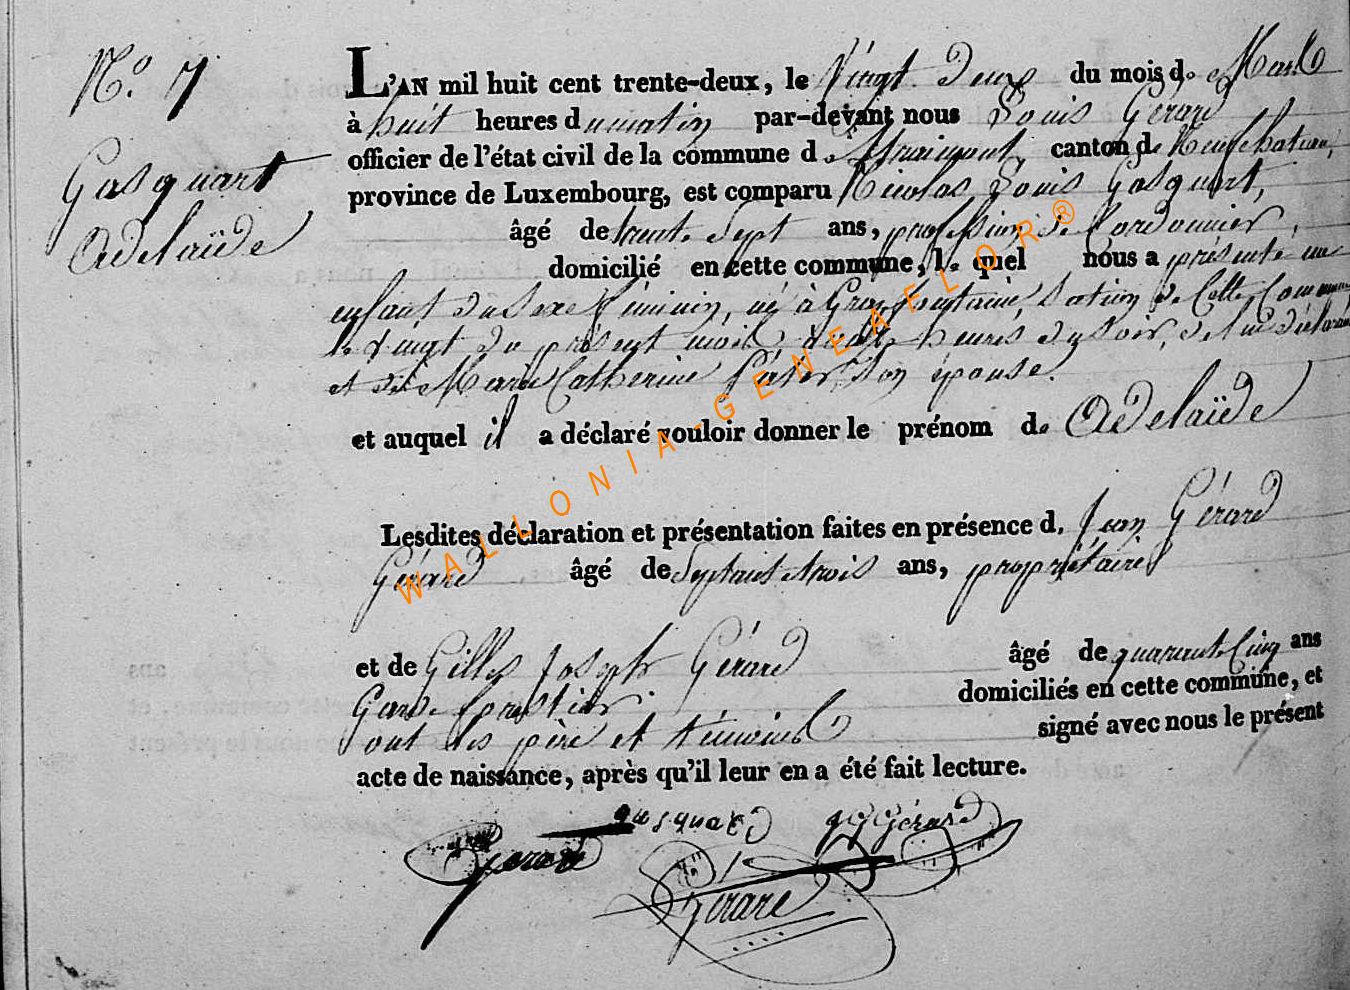 N.º 7
Gasquart
Adelaïde
L'AN mil huit cent trente-deux, le Vingt Deux du mois de Mars
à huit heures du matin par-devant nous Louis Gérard
officier de l'état civil de la commune d Straimont, canton de Neufchateau,
province de Luxembourg, est comparu Nicolas Louis Gasquart,
âgé de trente Sept ans, profession de Cordonnier,
domicilié en cette commune, le quel nous a présenté un
enfant du Sexe féminin, né à Grapfontaine, Section de Cette Commune
le vingt du présent mois heures du Soir, de lui déclarant
et de Marie Catherine son épouse.
et auquel il a déclaré vouloir donner le prénom de Adelaïde
Lesdites déclaration et présentation faites en présence d. Jean Gérard
Gérard âgé de Septante trois ans, propriétaire
et de Gilles Joseph Gérard âgé de quarante Cinq ans
Garde forestier domiciliés en cette commune, et
ont les père et témoins signé avec nous le présent
acte de naissance, après qu'il leur en a été fait lecture.
gasquard gjGérard
Gerard
Gérard
WALLONIA-GENEAFLOR®